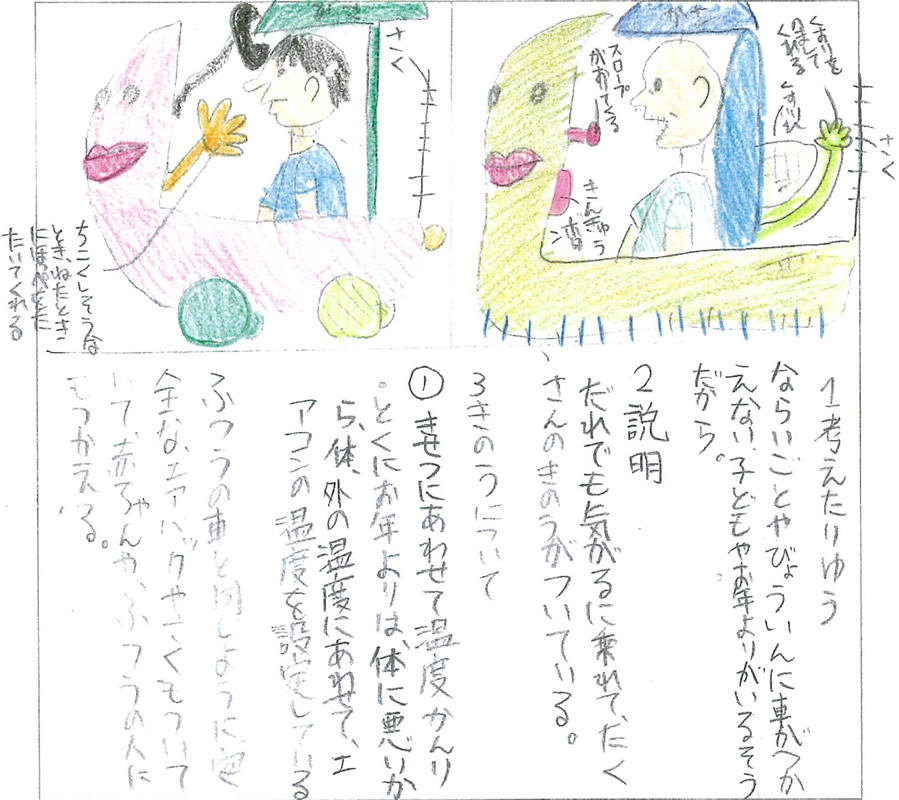 かさ
くすりを
のまして
くれる
いす
さんく
スロープ
がおてくる
きんきゅう
酒
かさ
さく
ちこくしそうな
ときねたとき
にほっぺをたた
たいてくれる
1考えたりゆう
ならいごとやびょういんに車がつか
えない、子どもやお年よりがいるそう
だから。
2説明
だれでも気がるに乗れて、たく
さんのきのうがついている。
3きのうについて
①きせつにあわせて温度かんり
。とくにお年よりは、体に悪いか
ら、体、外の温度にあわせて、エ
アコンの温度を設定している
ふつうの車と同じように、安
全な、エアバックやさくもついて
いて赤ちゃんや、ふつうの人に
もつかえる。